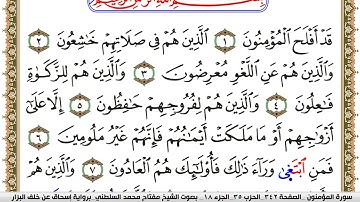 قَدۡ أَفۡلَحَ ٱلۡمُؤۡمِنُونَ ١ ٱلَّذِينَ هُمۡ فِي صَلَاتِهِمۡ خَٰشِعُونَ ٢
وَٱلَّذِينَ هُمۡ عَنِ ٱللَّغۡوِ مُعۡرِضُونَ ٣ وَٱلَّذِينَ هُمۡ لِلزَّكَوٰةِ
فَٰعِلُونَ ٤ وَٱلَّذِينَ هُمۡ لِفُرُوجِهِمۡ حَٰفِظُونَ ٥ إِلَّا عَلَىٰٓ
أَزۡوَٰجِهِمۡ أَوۡ مَا مَلَكَتۡ أَيۡمَٰنُهُمۡ فَإِنَّهُمۡ غَيۡرُ مَلُومِينَ ٦
فَمَنِ ٱبۡتَغَىٰ وَرَآءَ ذَٰلِكَ فَأُوْلَٰٓئِكَ هُمُ ٱلۡعَادُونَ ٧ وَٱلَّذِينَ هُمۡ
سورة المؤمنون . الصفحة ٣٤٢ . الحزب ٣٥ . الجزء ١٨ . بصوت الشيخ مفتاح محمد السلطني . برواية إسحاق عن خلف البزار